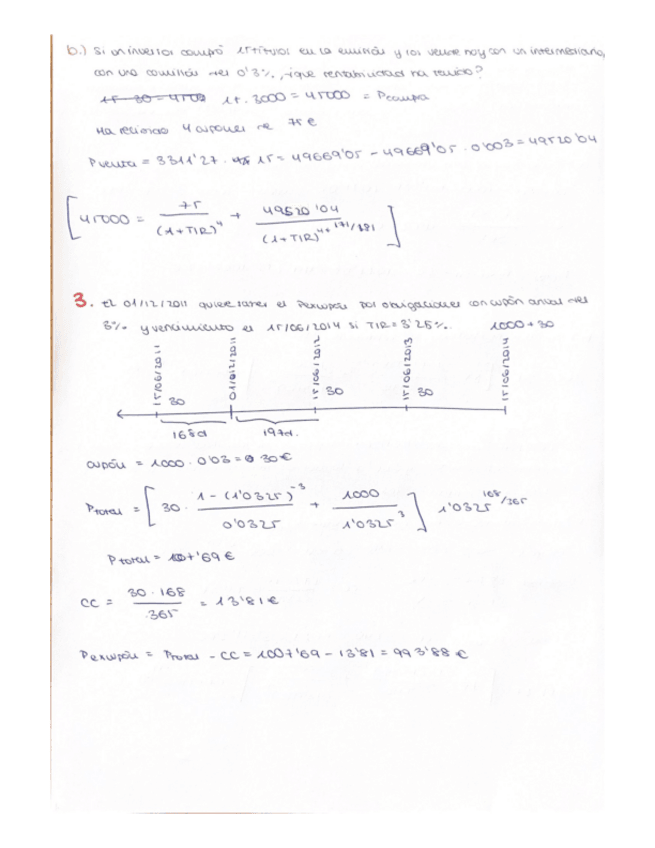 b.) Si un inversor compró 15 títulos en la emisión y los vende hoy con un intermediario,
con una comisión del 0'3%, ¿que rentabilidad ha tenido?
15 · 3000 = 45000 = Pcompra
Ha recibido 4 cupones de 75 €
Pventa = 3311'27 · 15 = 49669'05 - 49669'05 · 0'003 = 49520'04
[ 45000 = 75 / (1+TIR)^4 + 49520'04 / (1+TIR)^4+171/181 ]
3. El 01/12/2011 quiere saber el Pexcupón por obligaciones con cupón anual del
3% y vencimiento el 15/06/2014 si TIR = 3'25%. 1000 + 30
15/06/2011 01/12/2011 15/06/2012 15/06/2013 15/06/2014
30 30 30
168d 197d.
cupón = 1000 · 0'03 = 30 €
Ptotal = [ 30 · 1 - (1'0325)^-3 / 0'0325 + 1000 / 1'0325^3 ] 1'0325^168/365
Ptotal = 1007'69 €
CC = 30 · 168 / 365 = 13'81 €
Pexcupón = Ptotal - CC = 1007'69 - 13'81 = 993'88 €